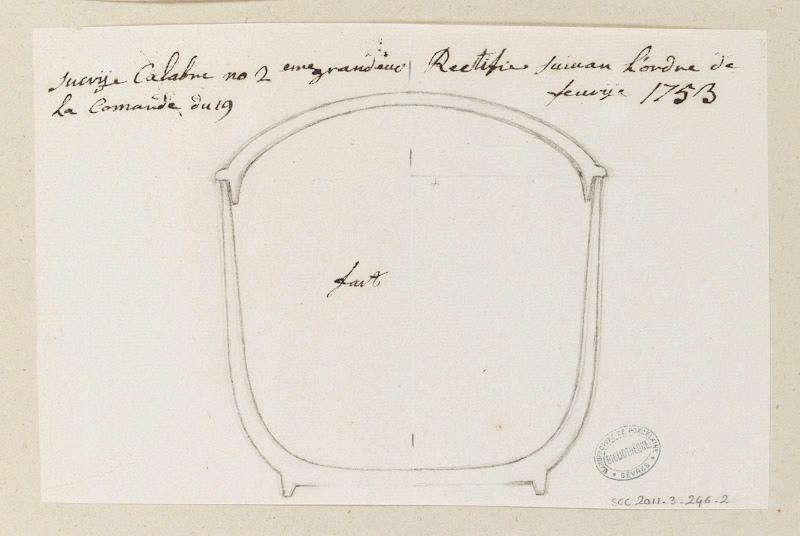 Sucrije Calabre no 2 eme grandeur Rectifie suivan l'ordre de
la Comande du 19 feuvrije 1753
fait
MANUFACTURE DE PORCELAINE
BIBLIOTHEQUE
SÈVRES
SCC 2011-3-246-2